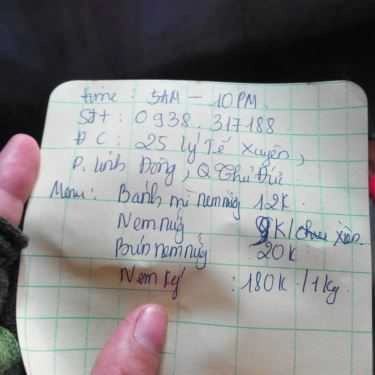 time : 5AM – 10PM.
Sđt : 0938.317188
Đ C : 25 Lý Tế Xuyên,
P. Linh Đông, Q Thủ Đức
Menu : Bánh mì nem nướng 12K.
Nem nướng 9K/chưa xiên
Bún nem nướng 20K
Nem ký : 180K./1kg.